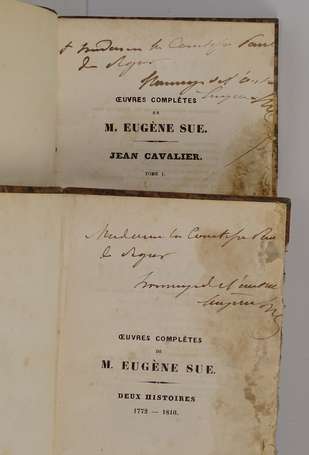 Madame la Comtesse Paul
de Ségur
hommage de l'auteur
Eugène Sue
ŒUVRES COMPLÈTES
DE
M. EUGÈNE SUE.
JEAN CAVALIER.
TOME I.
Madame la Comtesse Paul
de Ségur
hommage de l'auteur
Eugène Sue
ŒUVRES COMPLÈTES
DE
M. EUGÈNE SUE.
DEUX HISTOIRES
1772 — 1810.